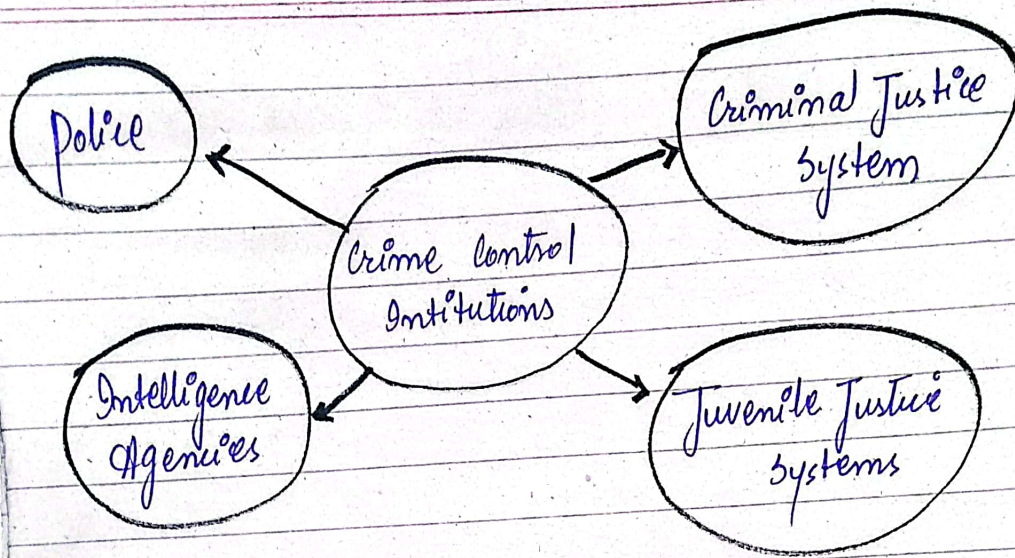 Police
Criminal Justice
System
Crime Control
Intitutions
Intelligence
Agencies
Juvenile Justice
Systems